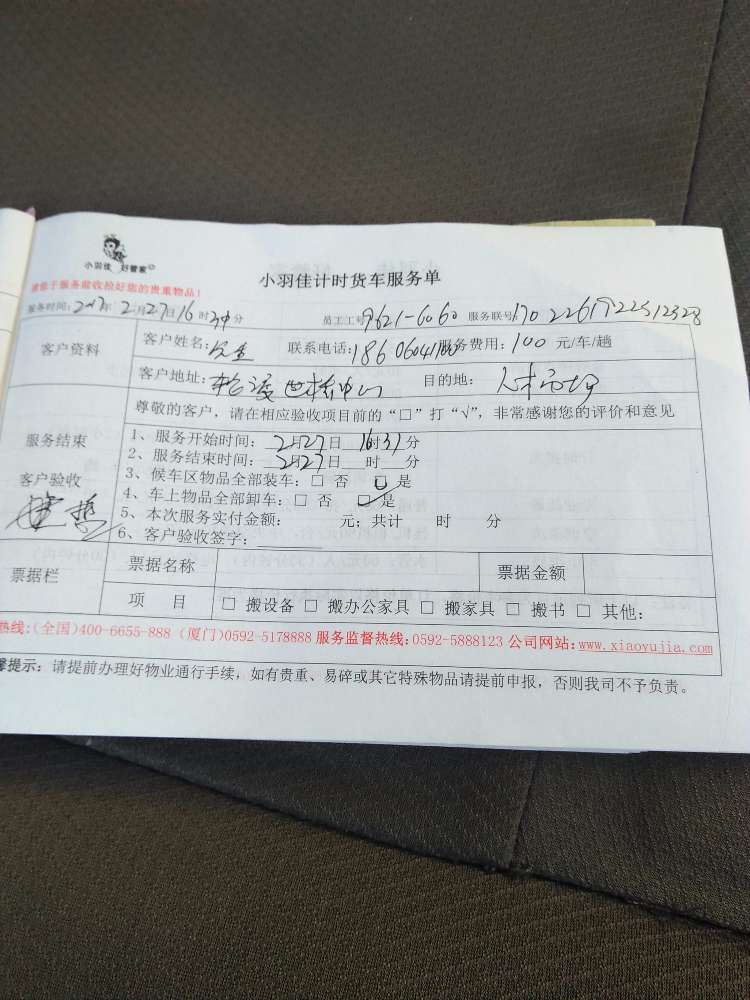 小羽佳 好管家
小羽佳计时货车服务单
请您于服务前收捡好您的贵重物品！
服务时间：2017年2月27日16时30分 员工工号9621-6060 服务联号170226172
客户资料 客户姓名： 联系电话：1860604 服务费用：100元/车/趟
客户地址： 目的地：人才市场
尊敬的客户，请在相应验收项目前的“□”打“√”，非常感谢您的评价和意见
服务结束
客户验收
1、服务开始时间：2月27日16时31分
2、服务结束时间：2月27日 时 分
3、候车区物品全部装车：□ 否 ☑ 是
4、车上物品全部卸车：□ 否 ☑ 是
5、本次服务实付金额： 元；共计 时 分
6、客户验收签字：
票据栏 票据名称 票据金额
项 目 □ 搬设备 □ 搬办公家具 □ 搬家具 □ 搬书 □ 其他：
热线：(全国)400-6655-888 (厦门)0592-5178888 服务监督热线：0592-5888123 公司网站：www.xiaoyujia.com
馨提示：请提前办理好物业通行手续，如有贵重、易碎或其它特殊物品请提前申报，否则我司不予负责。